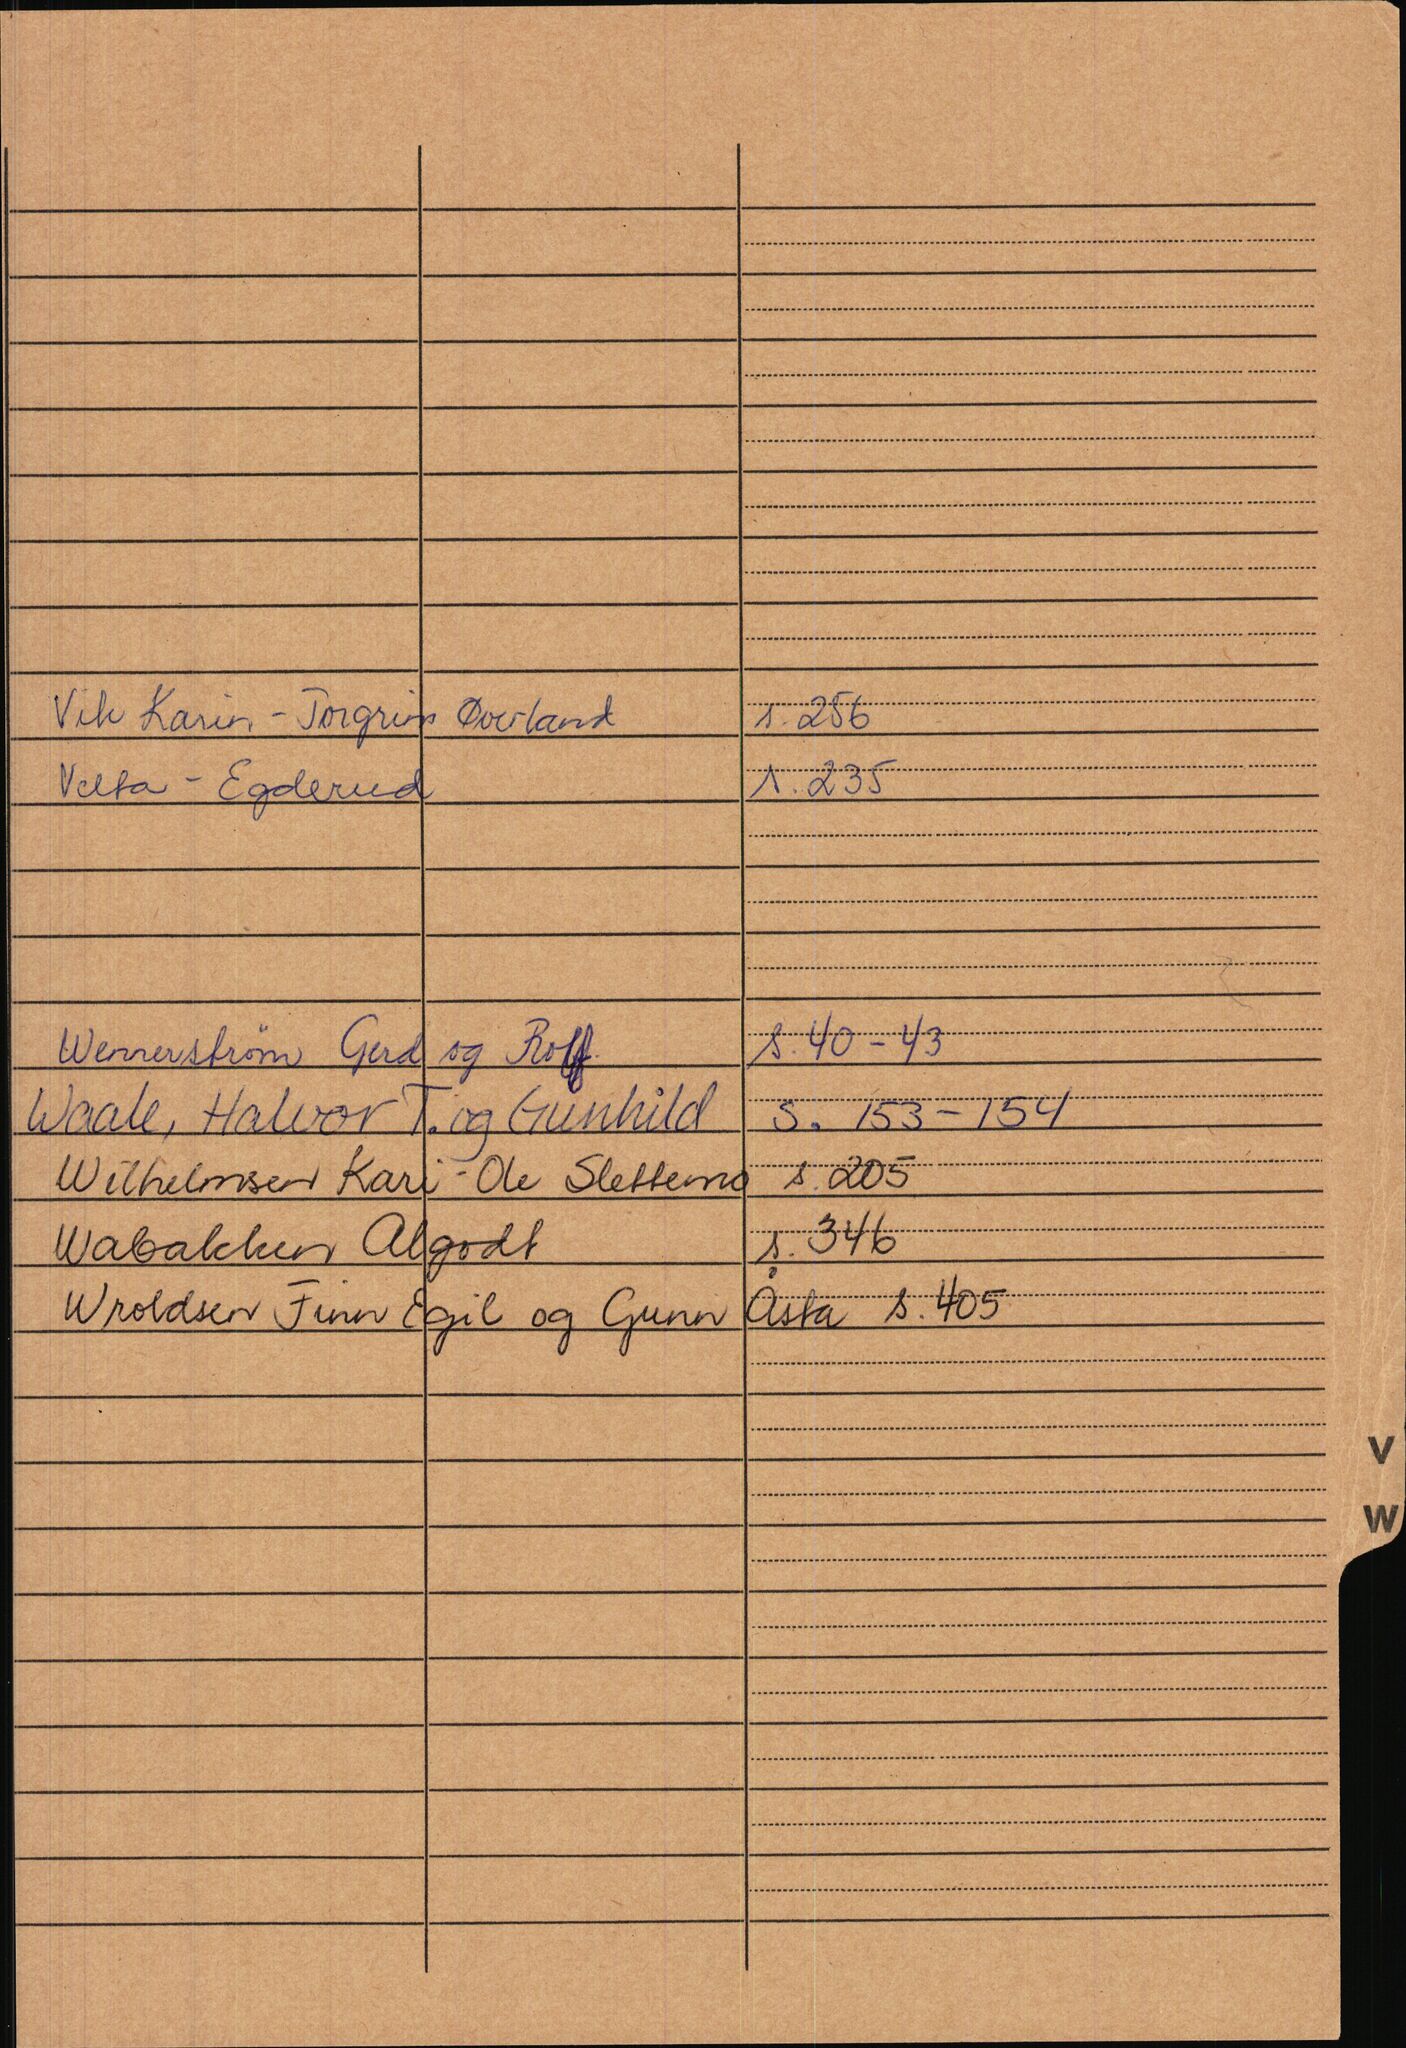 Vik Karin - Torgrim Øverland s. 256
Velta - Egderud s. 235
Wennerstrøm Gerd og Rolf s. 40 - 43
Waale, Halvor T. og Gunhild s. 153 - 154
Wilhelmsen Kari - Ole Slettemo s. 205
Wabakken Algodt s. 346
Wroldsen Finn Egil og Gunn Åsta s. 405
V
W